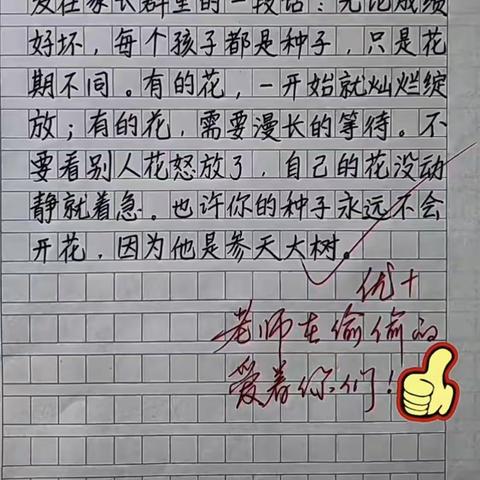 发在家长群里的一段话：无论成绩
好坏，每个孩子都是种子，只是花
期不同。有的花，一开始就灿烂绽
放；有的花，需要漫长的等待。不
要看别人花怒放了，自己的花没动
静就着急。也许你的种子永远不会
开花，因为他是参天大树。
优+
老师在偷偷的
爱着你们！